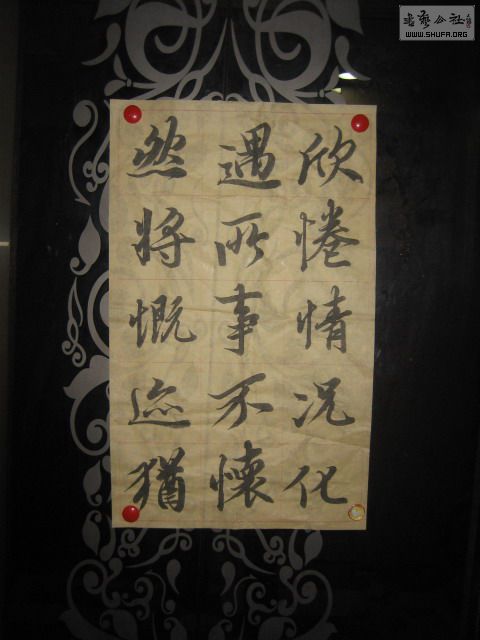 欣惓情况化
遇所事不懷
然将慨迹猶
書藝公社
WWW.SHUFA.ORG